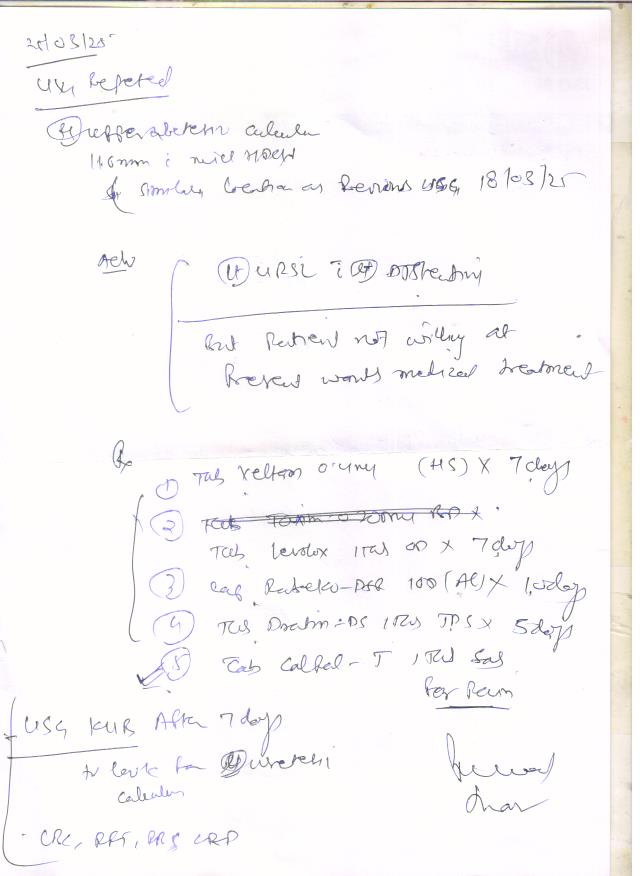 25/03/25
USG Repeted
(Lt) upper ureteric calculu
11.6mm c mild HDUN
similar location as Previous USG, 18/03/25
Adv
(Lt) URSL c (Lt) DJ Stenting
But Patient not willing at
Present wants medical treatment
Rx
① Tab Veltam 0.4mg (HS) X 7 days
② Tab
Tab Levolox 1 tab OD X 7 days
③ Cap Rabeko-DSR 1 OD (AC) X 10 days
④ Tab -DS 1 Tab TDS X 5 days
⑤ Tab Calpol-T 1 Tab SOS
For Pain
USG KUB After 7 days
to look for ureteric
calculus
CBC, RFT, RBS CRP